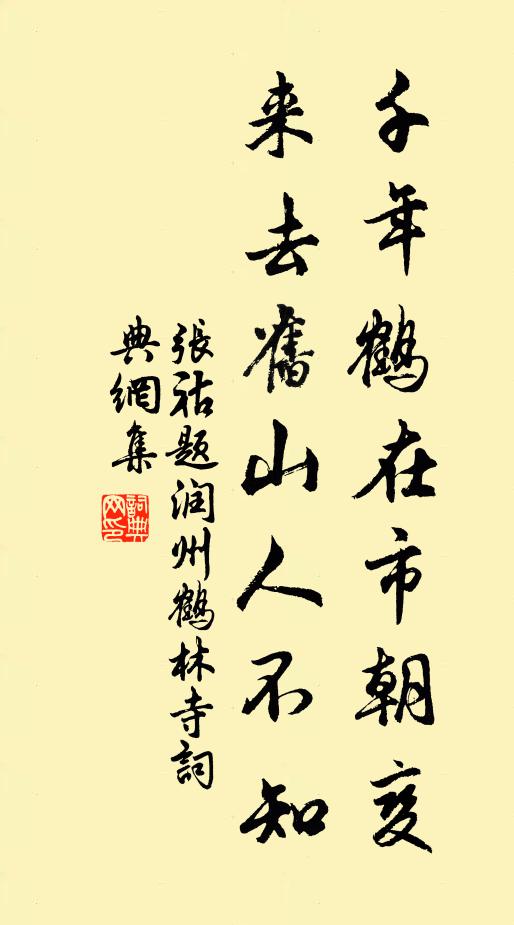 千年鹤在市朝变
来去舊山人不知
張祜題润州鶴林寺詞
典網集
詞典网印